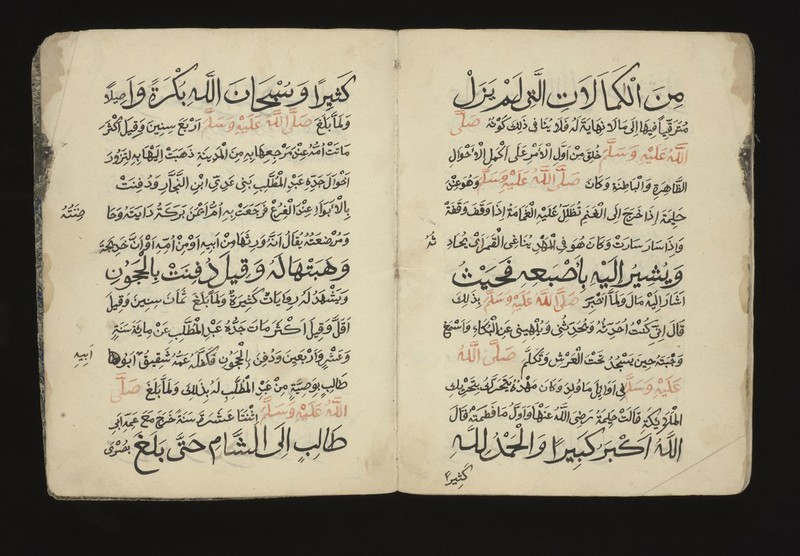 مِنَ الْكَمَالَاتِ الَّتِي لَمْ يَزَلْ
مُتَرَقِّيًا فِيهَا اِلَى مَا لَا نِهَايَةَ لَهُ فَلَا يُنَافِي ذَلِكَ كَوْنُهُ صَلَّى
اللَّهُ عَلَيْهِ وَسَلَّمَ خُلِقَ مِنْ اَوَّلِ الْاَمْرِ عَلَى اَكْمَلِ الْاَحْوَالِ
الظَّاهِرَةِ وَالْبَاطِنَةِ وَكَانَ صَلَّى اللَّهُ عَلَيْهِ وَسَلَّمَ وَهُوَ عِنْدَ
حَلِيمَةَ اِذَا خَرَجَ اِلَى الْغَنَمِ تُظَلِّلُ عَلَيْهِ الْغَمَامَةُ اِذَا وَقَفَ وَقَفَتْ
وَاِذَا سَارَ سَارَتْ وَكَانَ هُوَ فِي الْمَهْدِ يُنَاغِي الْقَمَرَ اَيْ يُحَادِ ثُهُ
وَيُشِيرُ اِلَيْهِ بِاُصْبُعِهِ فَحَيْثُ
اَشَارَ اِلَيْهِ مَالَ وَلَمَّا اَخْبَرَ صَلَّى اللَّهُ عَلَيْهِ وَسَلَّمَ بِذَلِكَ
قَالَ اِنِّي كُنْتُ اُحَدِّثُهُ وَيُحَدِّثُنِي وَيُلْهِينِي عَنِ الْبُكَاءِ وَاَسْمَعُ
وَجْبَتَهُ حِينَ يَسْجُدُ تَحْتَ الْعَرْشِ وَتَكَلَّمَ صَلَّى اللَّهُ
عَلَيْهِ وَسَلَّمَ فِي اَوَائِلِ مَا وُلِدَ وَكَانَ مَهْدُهُ يَتَحَرَّكُ بِتَحْرِيكِ
الْمَلَائِكَةِ قَالَتْ حَلِيمَةُ رَضِيَ اللَّهُ عَنْهَا وَاَوَّلُ مَا فَطَمْتُهُ قَالَ
اللَّهُ اَكْبَرُ كَبِيرًا وَالْحَمْدُ لِلَّهِ
كَثِيرًا
كَثِيرًا وَسُبْحَانَ اللَّهِ بُكْرَةً وَاَصِيلًا
وَلَمَّا بَلَغَ صَلَّى اللَّهُ عَلَيْهِ وَسَلَّمَ اَرْبَعَ سِنِينَ وَقِيلَ اَكْثَرَ
مَاتَتْ اُمُّهُ عِنْدَ مَرْجِعِهَا بِهِ مِنَ الْمَدِينَةِ ذَهَبَتْ اِلَيْهَا بِهِ لِتَزُورَ
اَخْوَالَ جَدِّهِ عَبْدِ الْمُطَّلِبِ بَنِي عَدِيِّ ابْنِ النَّجَّارِ وَدُفِنَتْ
بِالْاَبْوَاءِ عِنْدَ الْفُرْعِ فَرَجَعَتْ بِهِ اُمُّ اَيْمَنَ بَرَكَةُ دَايَتُهُ وَحَا ضِنَتُهُ
وَمُرْضِعَتُهُ يُقَالُ اَنَّهُ وَرِثَهَا مِنْ اَبِيهِ اَوْ مِنْ اُمِّهِ اَوْ اَنَّ خَدِيجَةَ
وَهَبَتْهَا لَهُ وَقِيلَ دُفِنَتْ بِالْحَجُونِ
وَيَشْهَدُ لَهُ رِوَايَاتٌ كَثِيرَةٌ وَلَمَّا بَلَغَ ثَمَانَ سِنِينَ وَقِيلَ
اَقَلَّ وَقِيلَ اَكْثَرَ مَاتَ جَدُّهُ عَبْدُ الْمُطَّلِبِ عَنْ مِائَةِ سَنَةٍ
وَعَشْرٍ وَاَرْبَعِينَ وَدُفِنَ بِالْحَجُونِ فَكَفَلَهُ عَمُّهُ شَقِيقُ اَبِيهِ اَبُو
طَالِبٍ بِوَصِيَّةٍ مِنْ عَبْدِ الْمُطَّلِبِ لَهُ بِذَلِكَ وَلَمَّا بَلَغَ صَلَّى
اللَّهُ عَلَيْهِ وَسَلَّمَ اثْنَتَا عَشَرَةَ سَنَةً خَرَجَ مَعَ عَمِّهِ اَبِي
طَالِبٍ اِلَى الشَّامِ حَتَّى بَلَغَ بُصْرَى